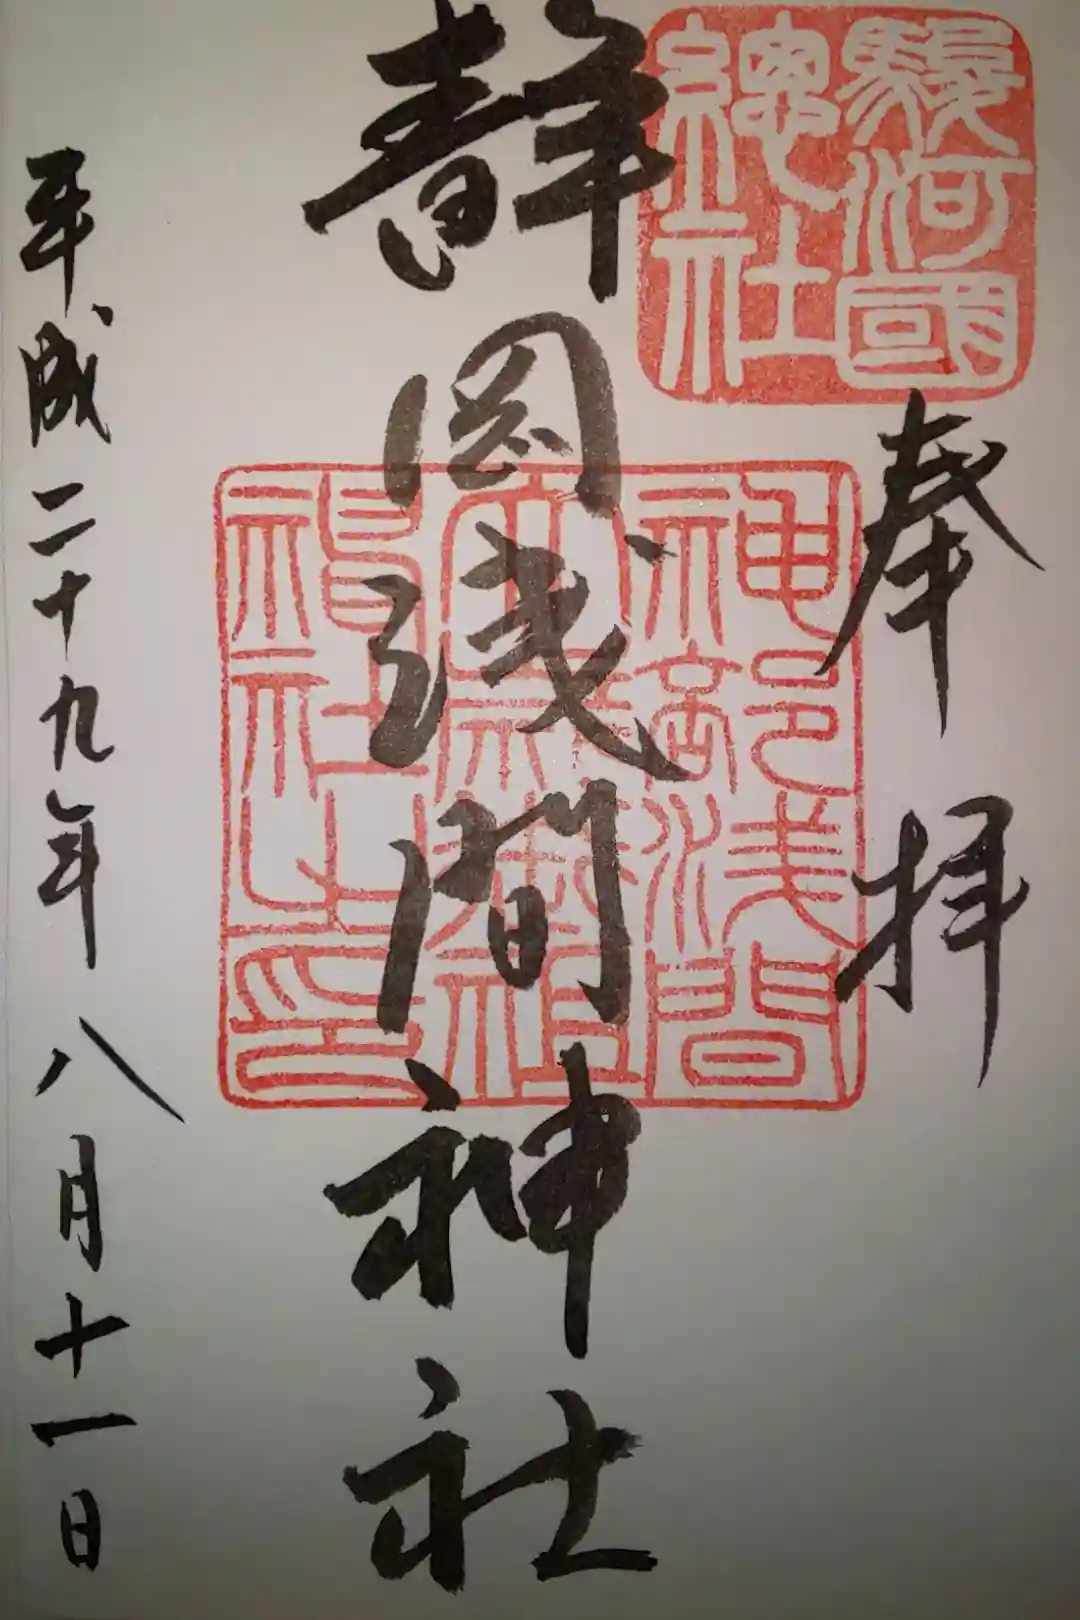 駿河國
總社
奉拝
静岡浅間神社
神部淺間
大歳御祖
神社之印
平成二十九年八月十一日